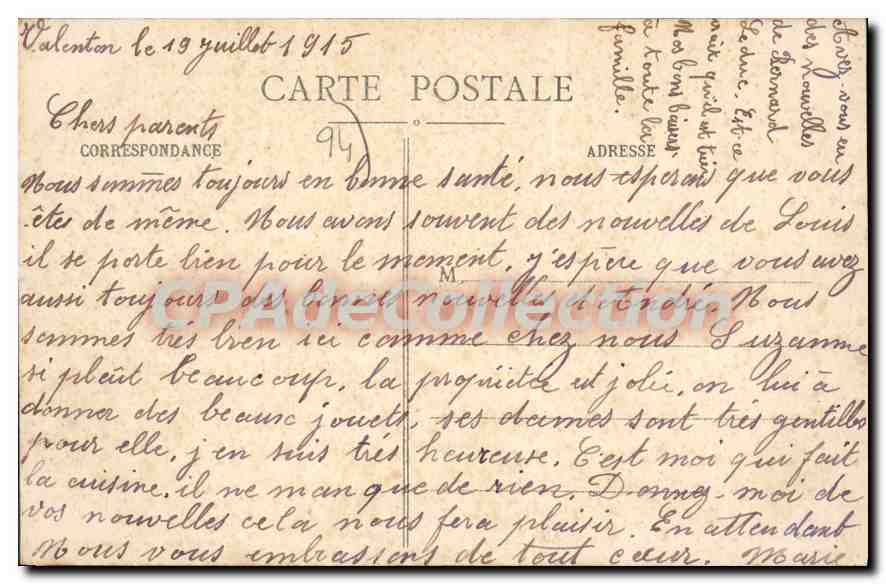 Valenton le 19 juillet 1915
CARTE POSTALE
Chers parents
94
CORRESPONDANCE
ADRESSE
Nous sommes toujours en bonne santé, nous esperons que vous
êtes de même. Nous avons souvent des nouvelles de Louis
il se porte bien pour le moment, j'espère que vous avez
M.
aussi toujours des bonnes nouvelles d'André. Nous
CPAdeCollection
sommes très bien ici comme chez nous Suzanne
si plaît beaucoup, la propriétée est jolie, on lui à
donner des beaux jouets, ses dames sont très gentilles
pour elle, j'en suis très heureuse. C'est moi qui fait
la cuisine, il ne manque de rien. Donnez-moi de
vos nouvelles cela nous fera plaisir. En attendant
Nous vous embrassons de tout cœur. Marie
Avez-vous eu
des nouvelles
de Bernard
Leduc. Est-ce
vrait qu'il est tué
Nos bons baisers
à toute la
famille.